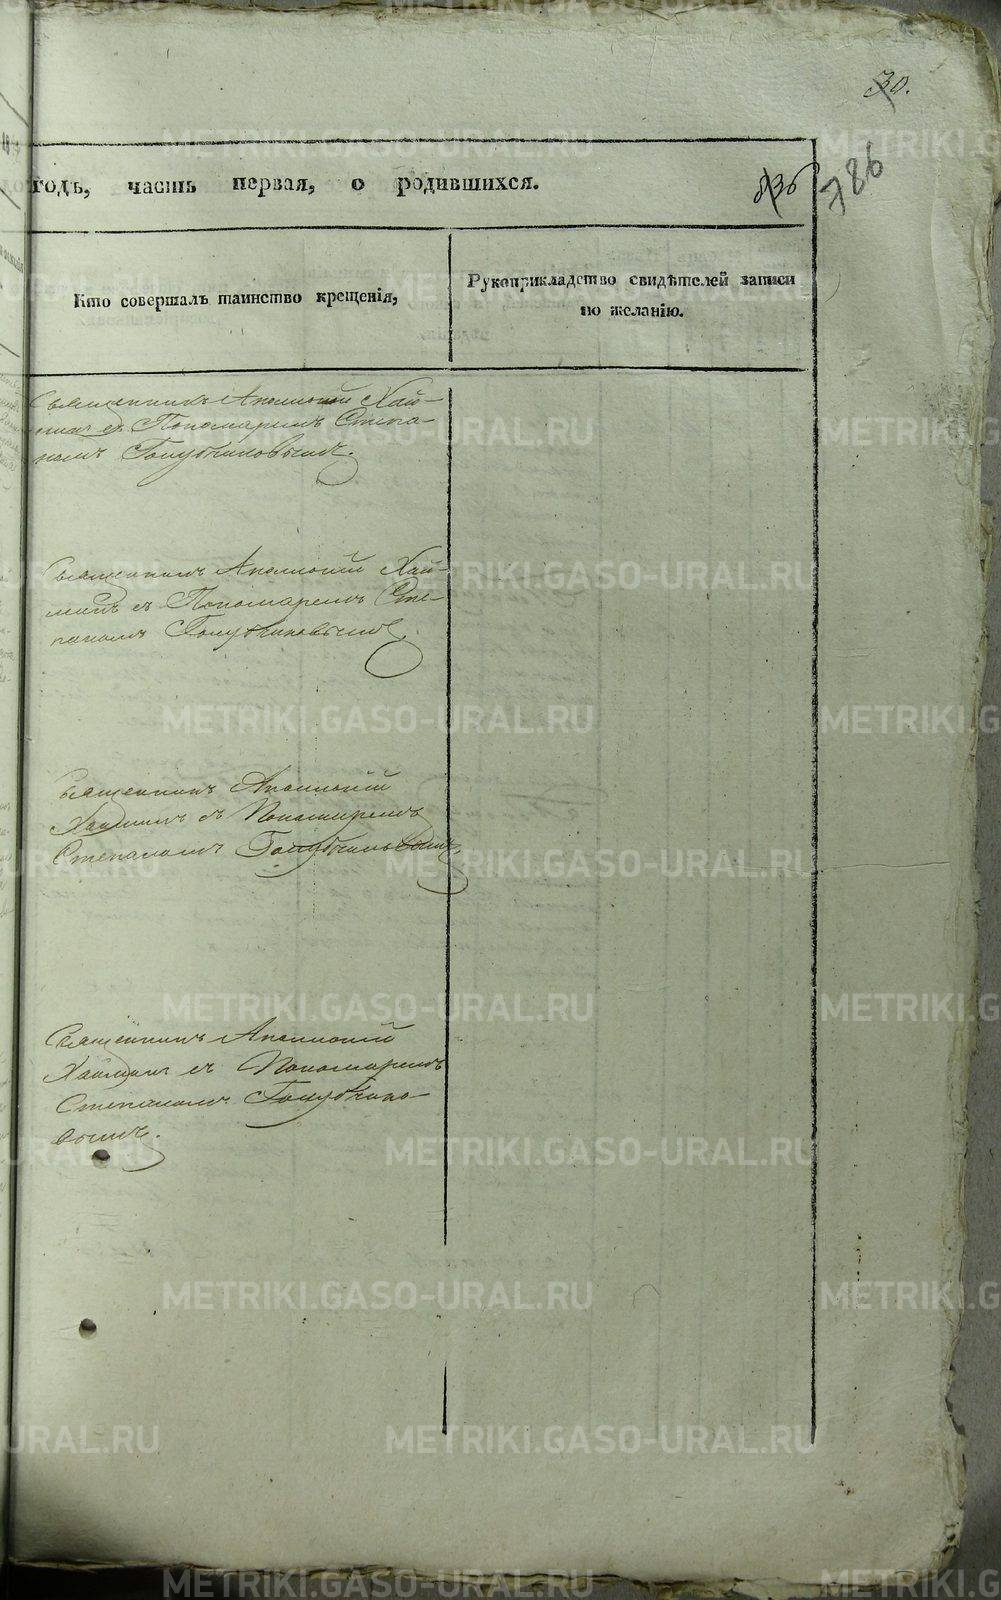 30.
годъ, часть первая, о родившихся.
836
786
Кто совершалъ таинство крещенія,
Рукоприкладство свидѣтелей записи
по желанію.
Священникъ Аполлоній Хай-
минъ съ Пономаремъ Степа-
номъ Голубчиковымъ.
Священникъ Аполлоній Хай-
минъ съ Пономаремъ Сте-
паномъ Голубчиковымъ
Священникъ Аполлоній
Хайминъ съ Пономаремъ
Степаномъ Голубчиковымъ.
Священникъ Аполлоній
Хайминъ съ Пономаремъ
Степаномъ Голубчико-
вымъ.
METRIKI.GASO-URAL.RU